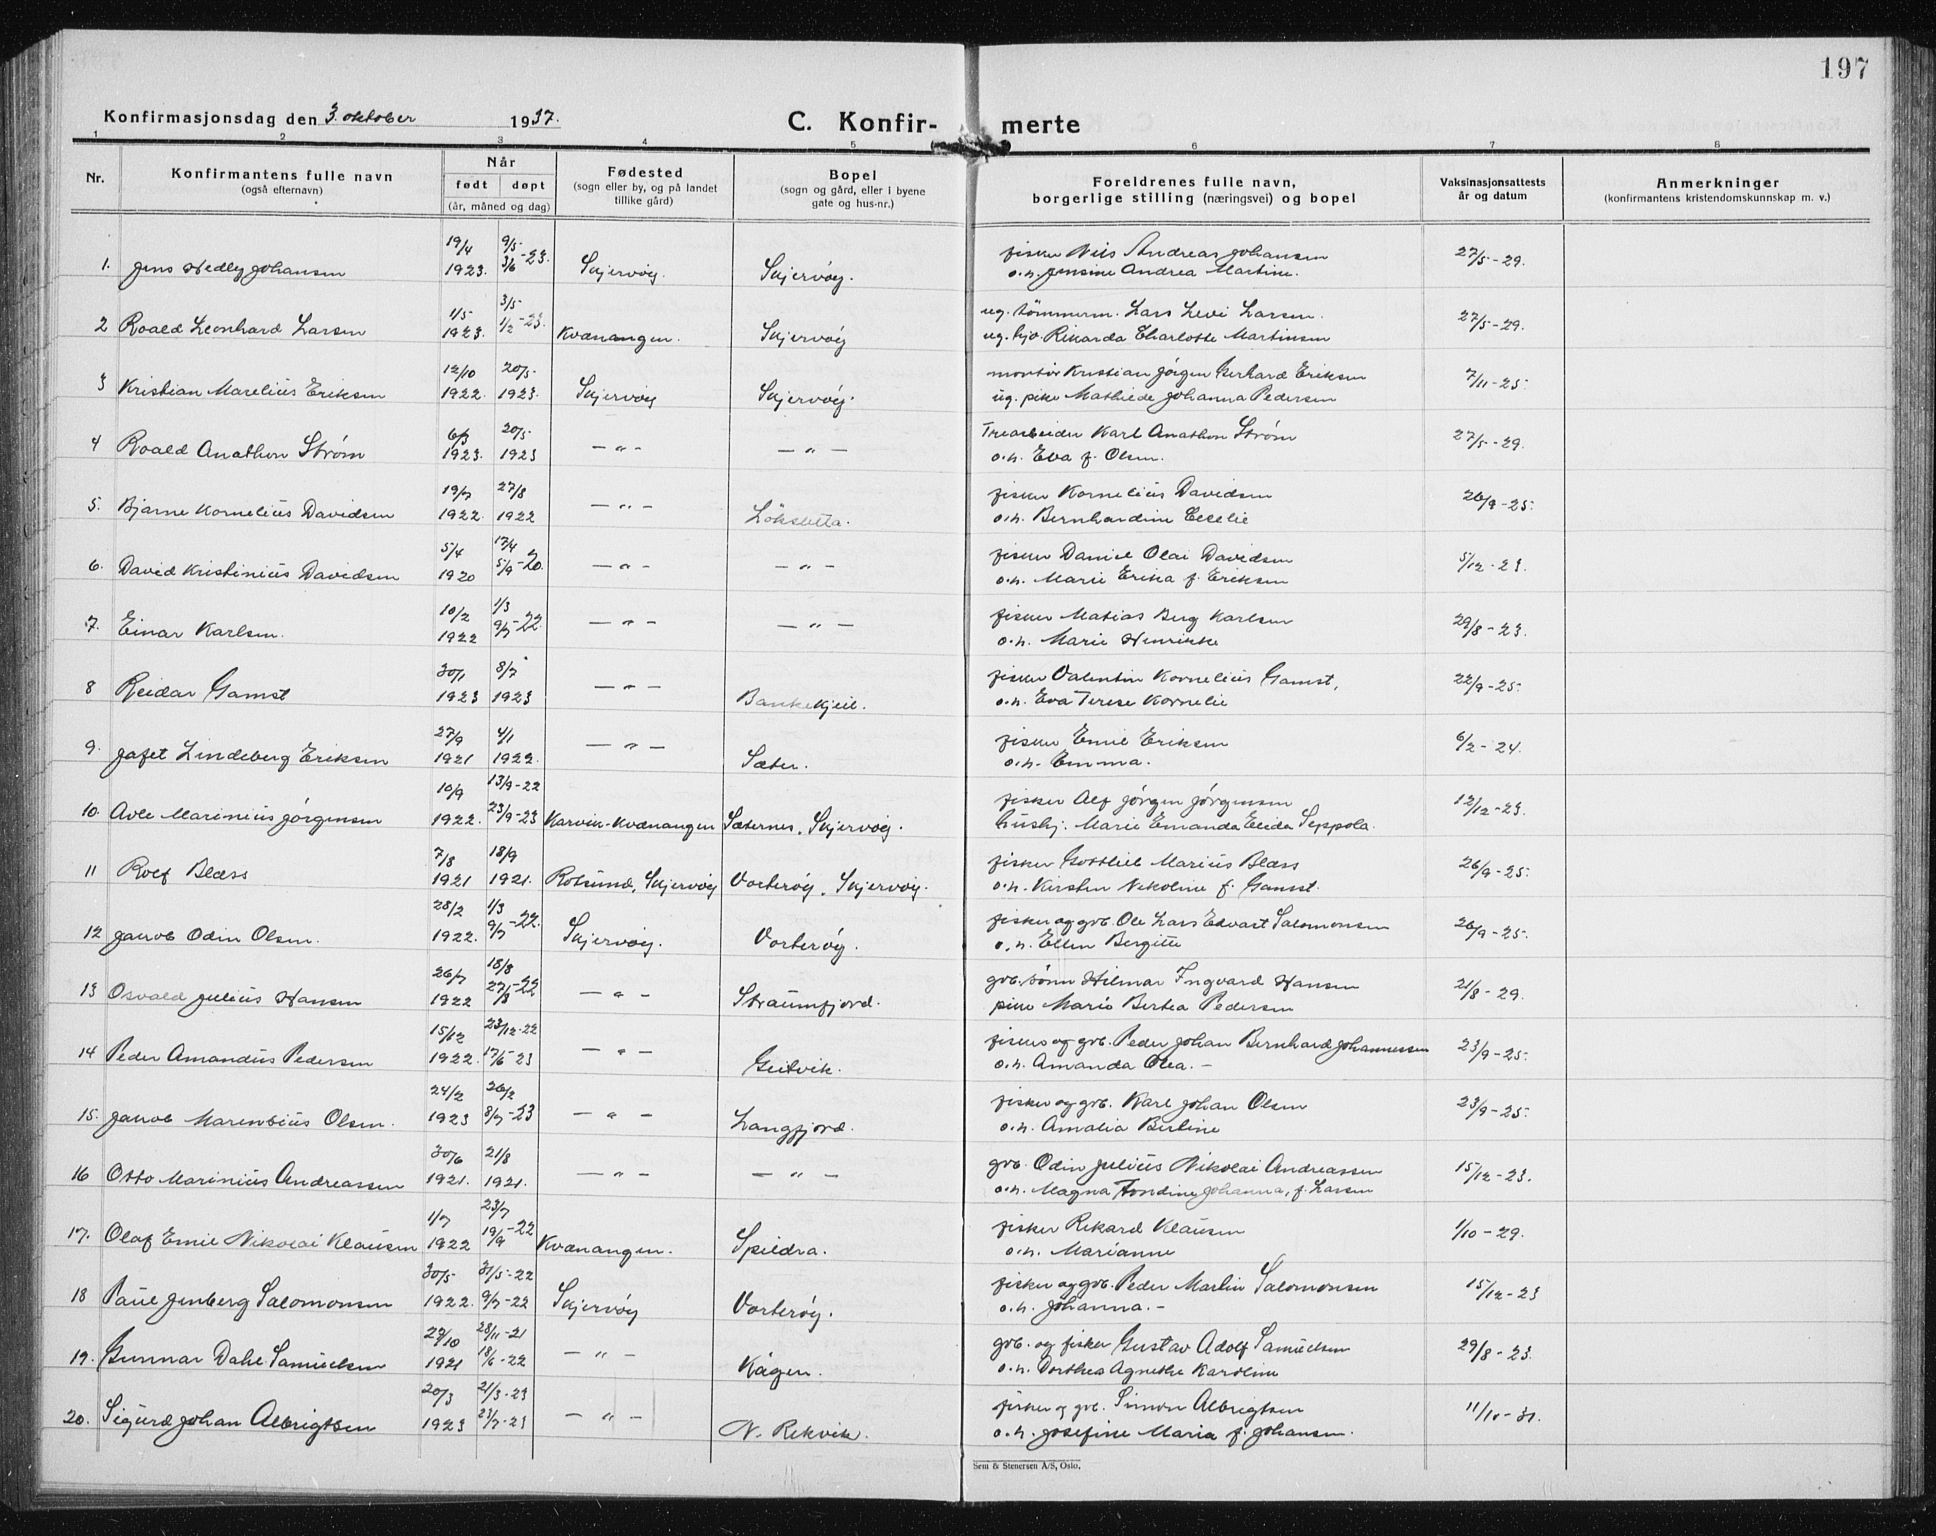 197
Konfirmasjonsdag den 3. oktober 1937.
C. Konfir- merte
1 2 3 4 5 6 7 8
Nr.
Konfirmantens fulle navn
(også efternavn)
Når
født døpt
(år, måned og dag)
Fødested
(sogn eller by, og på landet
tillike gård)
Bopel
(sogn og gård, eller i byene
gate og hus-nr.)
Foreldrenes fulle navn,
borgerlige stilling (næringsvei) og bopel
Vaksinasjonsattests
år og datum
Anmerkninger
(konfirmantens kristendomskunnskap m. v.)
19/4 9/5 3/6 -23. fisker Nils Andreas Johansen 27/5-29.
1. Jens Hedley Johansen 1923. Skjervøy. Skjervøy. o.h. Jensine Andrea Martine.
1/5 3/5 1/2 -23. ug. tømmerm. Lars Levi Larsen. 27/5-29.
2 Roald Leonhard Larsen 1923. Kvænangen. Skjervøy ug. hjv. Rikarda Charlotte Martinsen
12/10 20/5 montør Kristian Jørgen Gerhard Eriksen 7/11-25.
3 Kristian Marelius Eriksen 1922. 1923. Skjervøy Skjervøy. ug. pike Mathilde Johanna Pedersen
6/3 20/5 Trearbeider Karl Anathon Strøm 27/5-29.
4 Roald Anathon Strøm 1923. 1923 — " — — " — o.h. Eva f. Olsen.
19/7 27/8 fisker Kornelius Davidsen 26/9-25.
5. Bjarne Kornelius Davidsen 1922. 1922 — " — Løksletta. o.h. Bernhardine Cecelie
5/4 17/4 5/9 -20. fisker Daniel Olai Davidsen 5/12-23.
6. David Kristinius Davidsen 1920 — " — — " — o.h. Marie Erika f. Eriksen
10/2 1/3 9/7 -22. fisker Matias Berg Karlsen 29/8-23.
7. Einar Karlsen. 1922 — " — — " — o.h. Marie Henrikke
30/1 8/7 fisker Valentin Kornelius Gamst, 22/9-25.
8 Reidar Gamst 1923 1923 — " — Bankekjeil. o.h. Eva Terese Kornelie
27/9 4/1 fisker Emil Eriksen 6/2-24.
9. Jafet Lindeberg Eriksen 1921 1922. — " — Sæter. o.h. Emma.
10/9 13/9-22 fisker Alf Jørgen Jørgensen 12/12-23.
10. Avle Marinius Jørgensen 1922. 23/9-23 Karvik-Kvænangen Sæternes, Skjervøy. hushj. Marie Emanda Elida Seppola.
7/8 18/9 fisker Gottlieb Marius Blæss 26/9-25.
11 Rolf Blæss 1921 1921. Rotsund, Skjervøy Vorterøy, Skjervøy. o.h. Kirsten Nikoline f. Gamst.
28/2 1/3 9/7 -22. fisker og gvb. Ole Lars Edvart Salomonsen 26/9-25.
12 Jakob Odin Olsen. 1922. Skjervøy. Vorterøy. o.h. Ellen Bergitte
26/7 18/8 -22 gvb. sønn Hilmar Ingvard Hansen 21/8-29.
13 Osvald Julius Hansen 1922 — " — Straumfjord. pike Marie Bertea Pedersen
15/12 23/12-22 fisker og gvb. Peder Johan Bernhard Johannessen 23/9-25.
14 Peder Amandus Pedersen 1922. 17/6-23 — " — Geitvik. o.h. Amanda Olea. —
24/2 26/2 fisker og gvb. Karl Johan Olsen 23/9-25.
15. Jakob Marensius Olsen. 1923 8/7-23 — " — Langfjord. o.h. Amalia Bertine
30/6 21/8 gvb. Odin Julius Nikolai Andreassen 15/12-23.
16 Otto Marinius Andreassen 1921. 1921. — " — — " — o.h. Magna Tondine Johanna, f. Larsen
1/7 23/7 19/9 -22 fisker Rikard Klausen 1/10-29.
17. Olaf Emil Nikolai Klausen 1922 Kvænangen. Spildra. o.h. Marianne
30/5 31/5-22 fisker og gvb. Peder Martin Salomonsen 15/12-23
18 Paul Jenberg Salomonsen 1922. 9/7-22 Skjervøy Vorterøy. o.h. Johanna. —
29/10 28/11-21 gvb. og fisker Gustav Adolf Samuelsen 29/8-23.
19. Gunnar Dahl Samuelsen 1921 18/6-22 — " — Kågen. o.h. Dorthea Agnethe Karoline
20/3 21/3-23 fisker og gvb. Simon Albrigtsen 11/10-31.
20. Sigurd Johan Albrigtsen 1923 23/7-23 — " — N. Rekvik. o.h. Josefine Maria f. Johansen.
Sem & Stenersen A/S, Oslo.